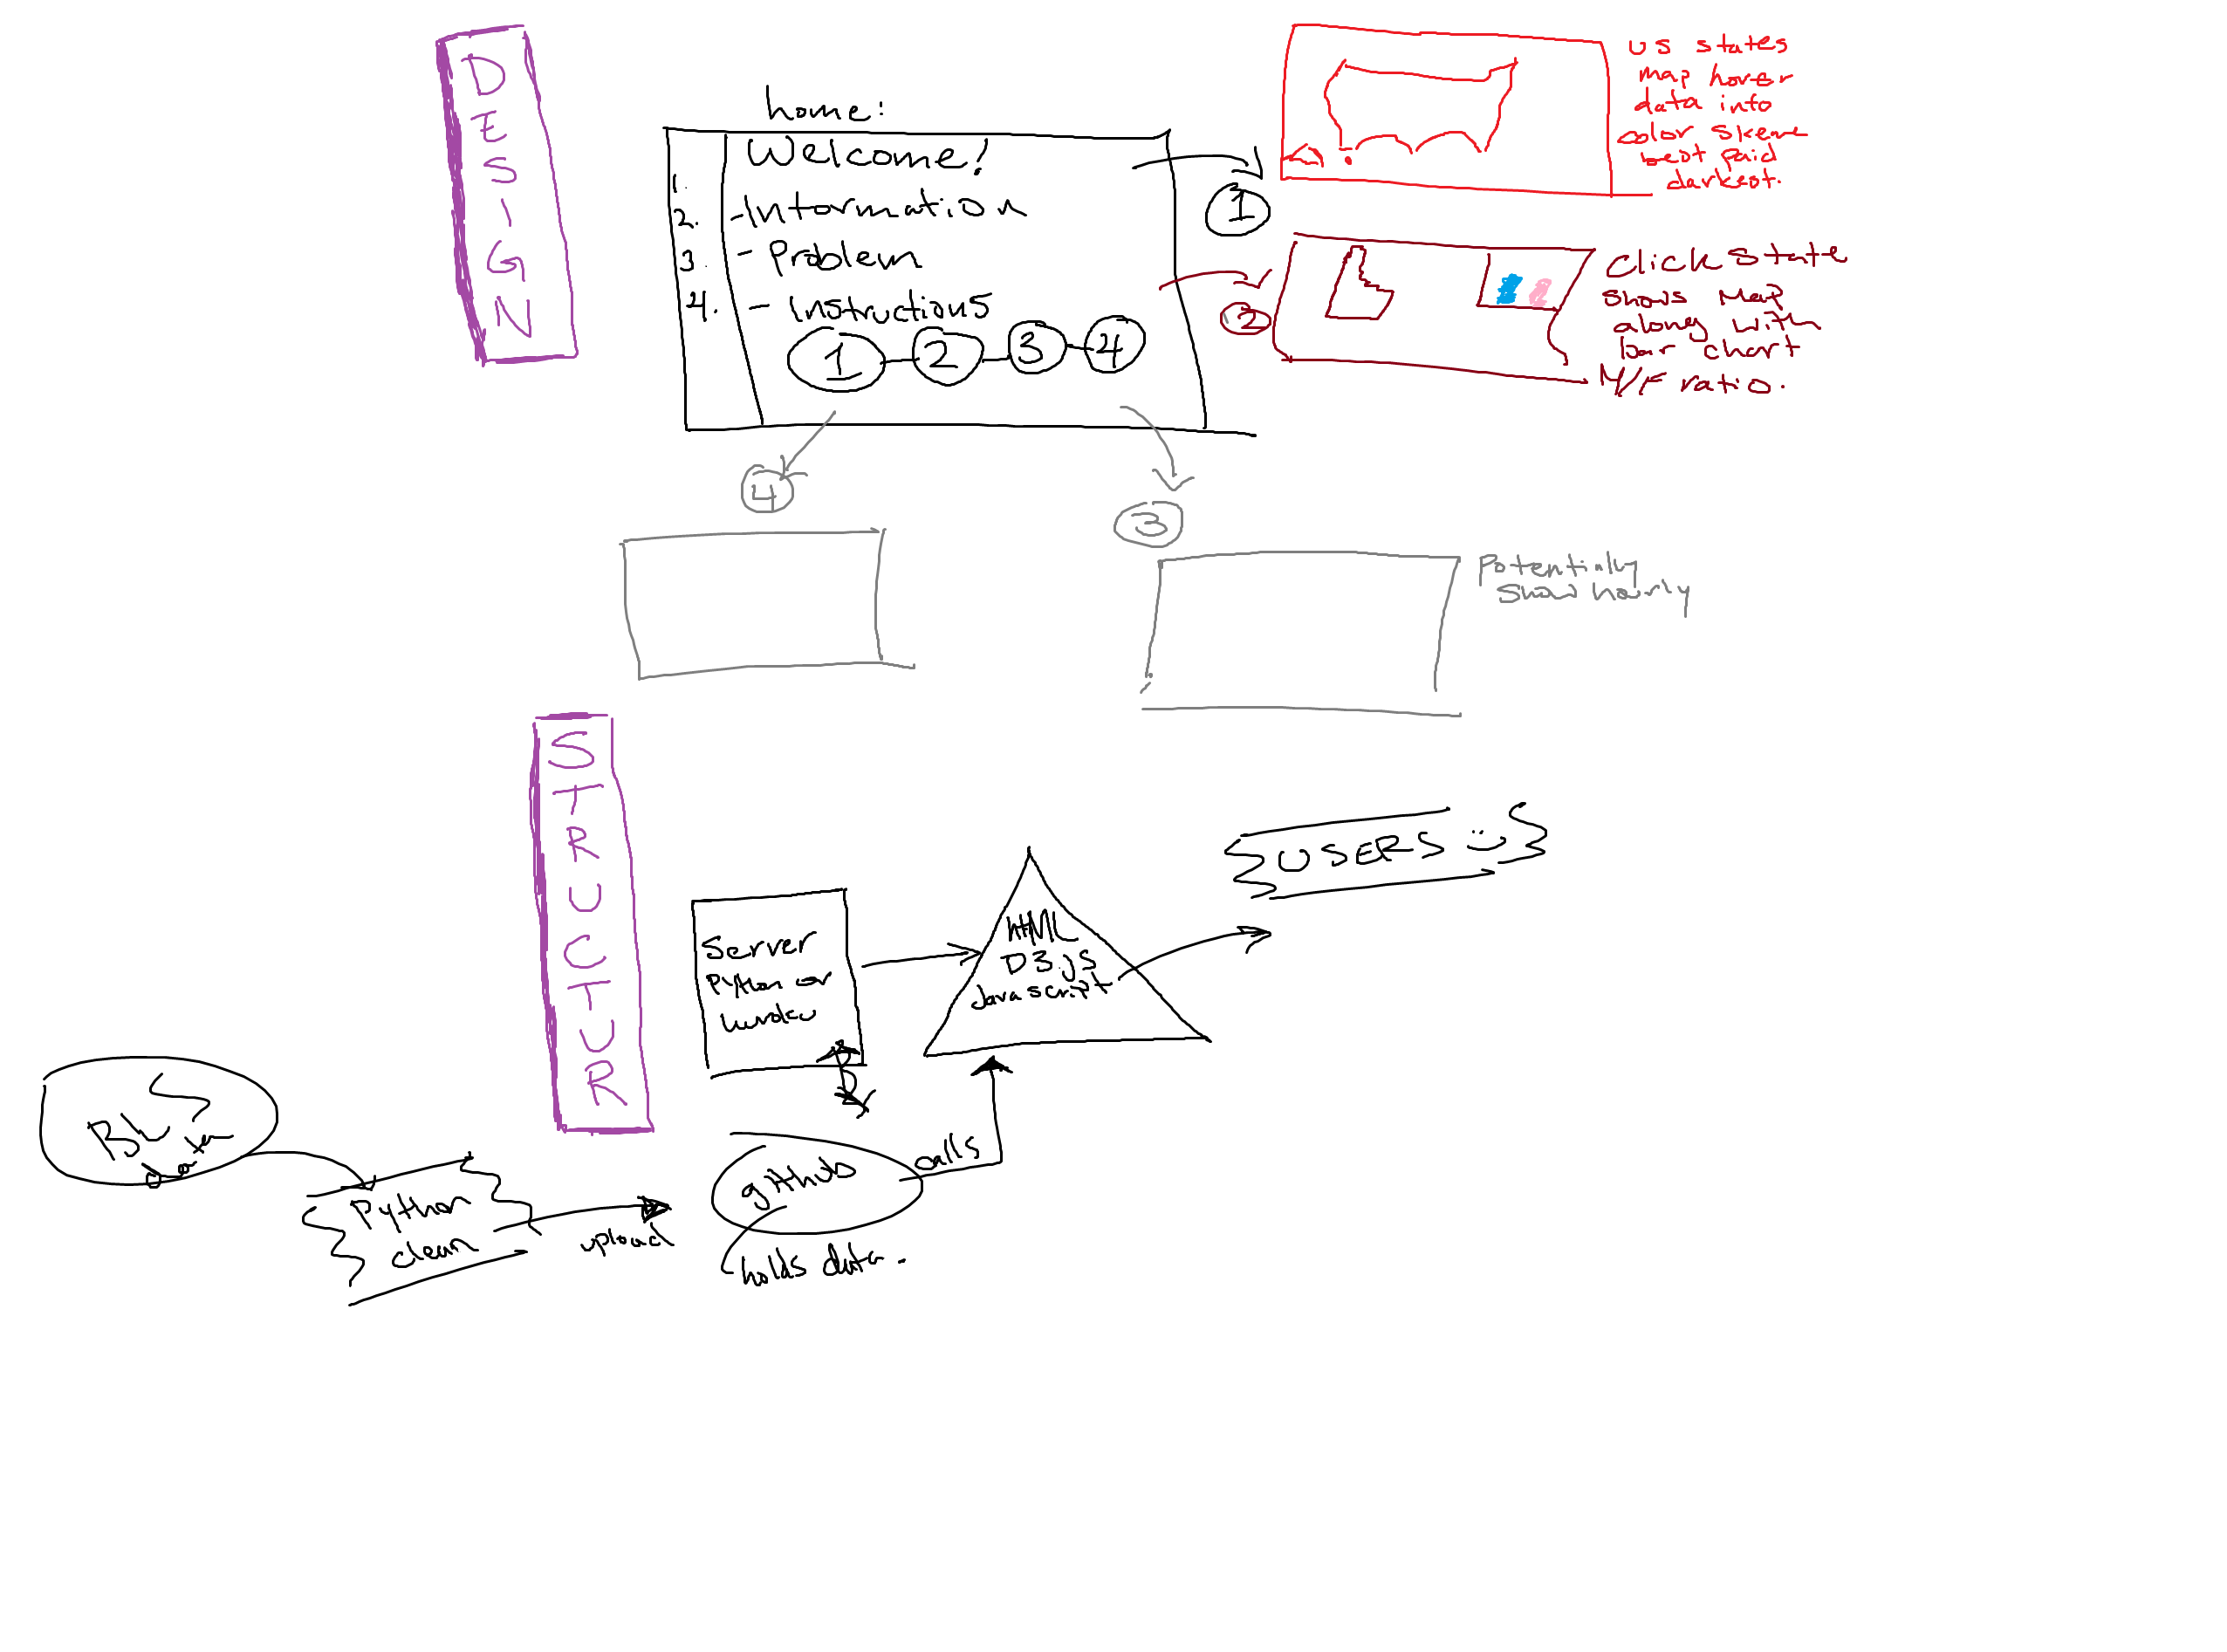 DESIGN
home:
Welcome!
1.
2. -Information
3. -Problem
4. -Instructions
1 2 3 4
1
us states
map hover
data info
color skeme
best paid
darkest.
2
Click State
shows Map
along with
bar chart
M/F ratio.
4
3
Potentially
show hourly
STRUCTUR
USERS
Server
Python or
HTML
D3.js
Javascript
BLS
Data
Python
clean
upload
github
calls
holds data.